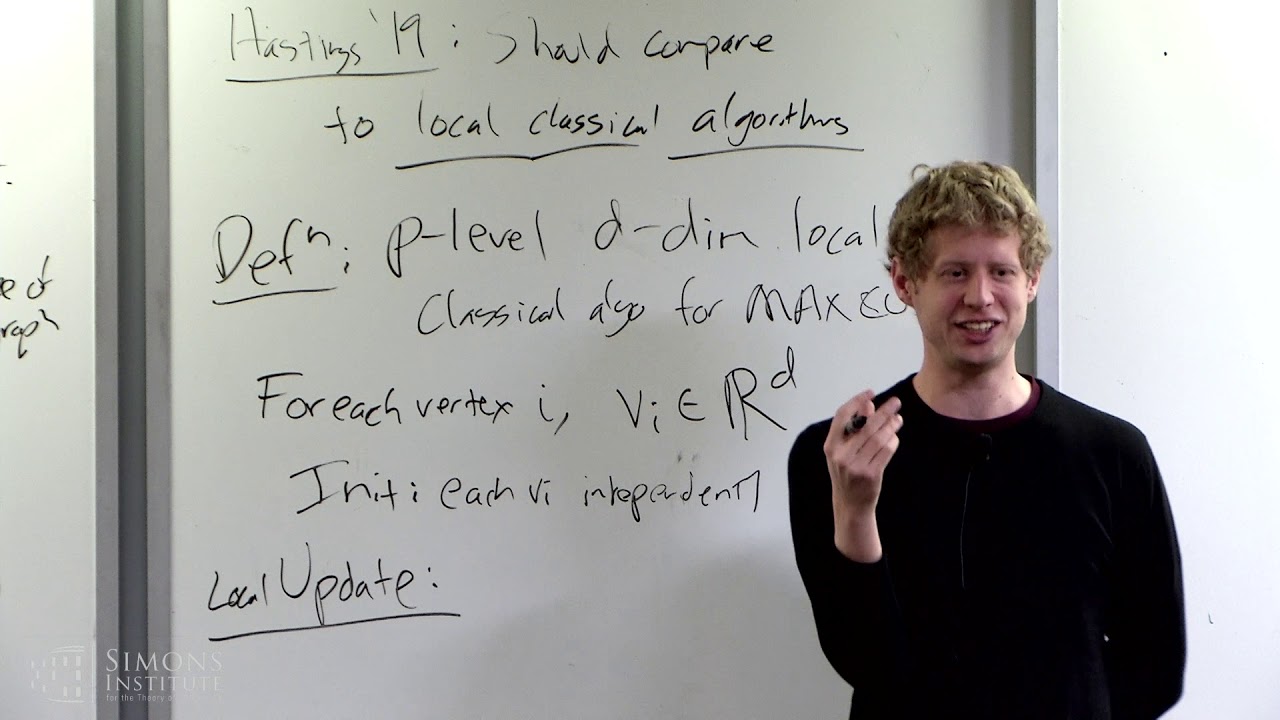 Hastings '19 : Should compare
to local classical algorithms
Defⁿ: p-level d-dim local
Classical algo for MAX
For each vertex i, vᵢ ∈ ℝᵈ
Init: each vi independently
Local Update:
e of
raph
SIMONS
INSTITUTE
for the Theory of